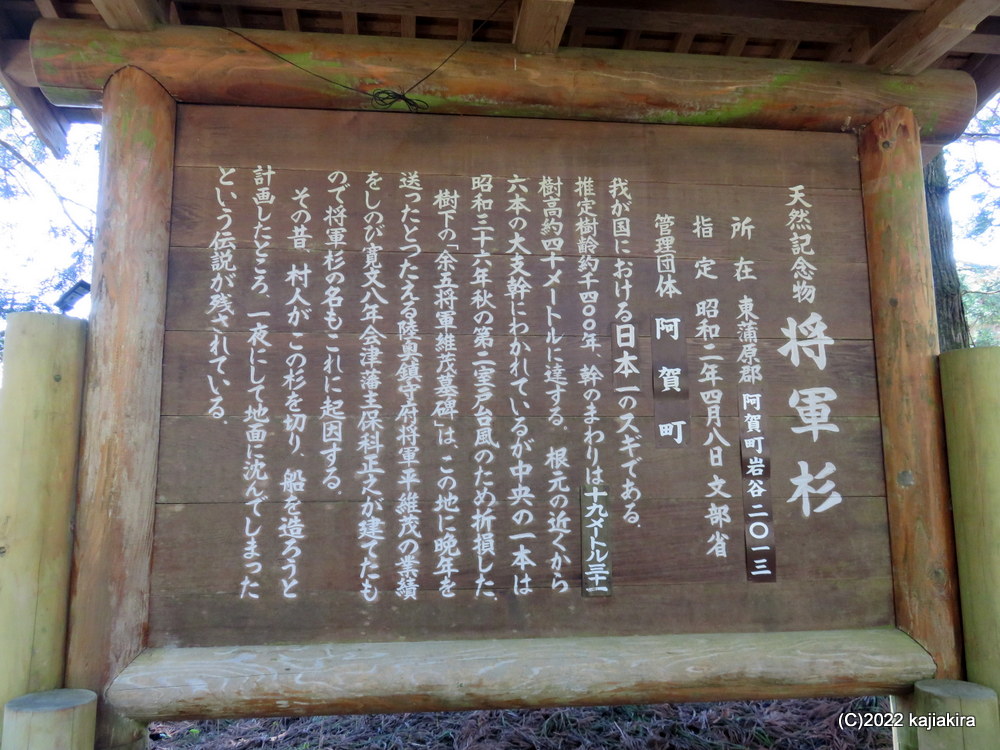 天然記念物 将軍杉
所在 東蒲原郡 阿賀町岩谷二〇一三
指定 昭和二年四月八日文部省
管理団体 阿賀町
我が国における日本一のスギである．
推定樹齢約千四〇〇年、幹のまわりは十九メートル三十一
樹高約四十メートルに達する．根元の近くから
六本の大支幹にわかれているが中央の一本は
昭和三十六年秋の第二室戸台風のため折損した．
樹下の「余五将軍維茂墓碑」は、この地に晩年を
送ったとつたえる陸奥鎮守府将軍平維茂の業績
をしのび寛文八年会津藩主保科正之が建てたも
ので将軍杉の名もこれに起因する．
その昔、村人がこの杉を切り、船を造ろうと
計画したところ、一夜にして地面に沈んでしまった
という伝説が残されている．
(C)2022 kajiakira